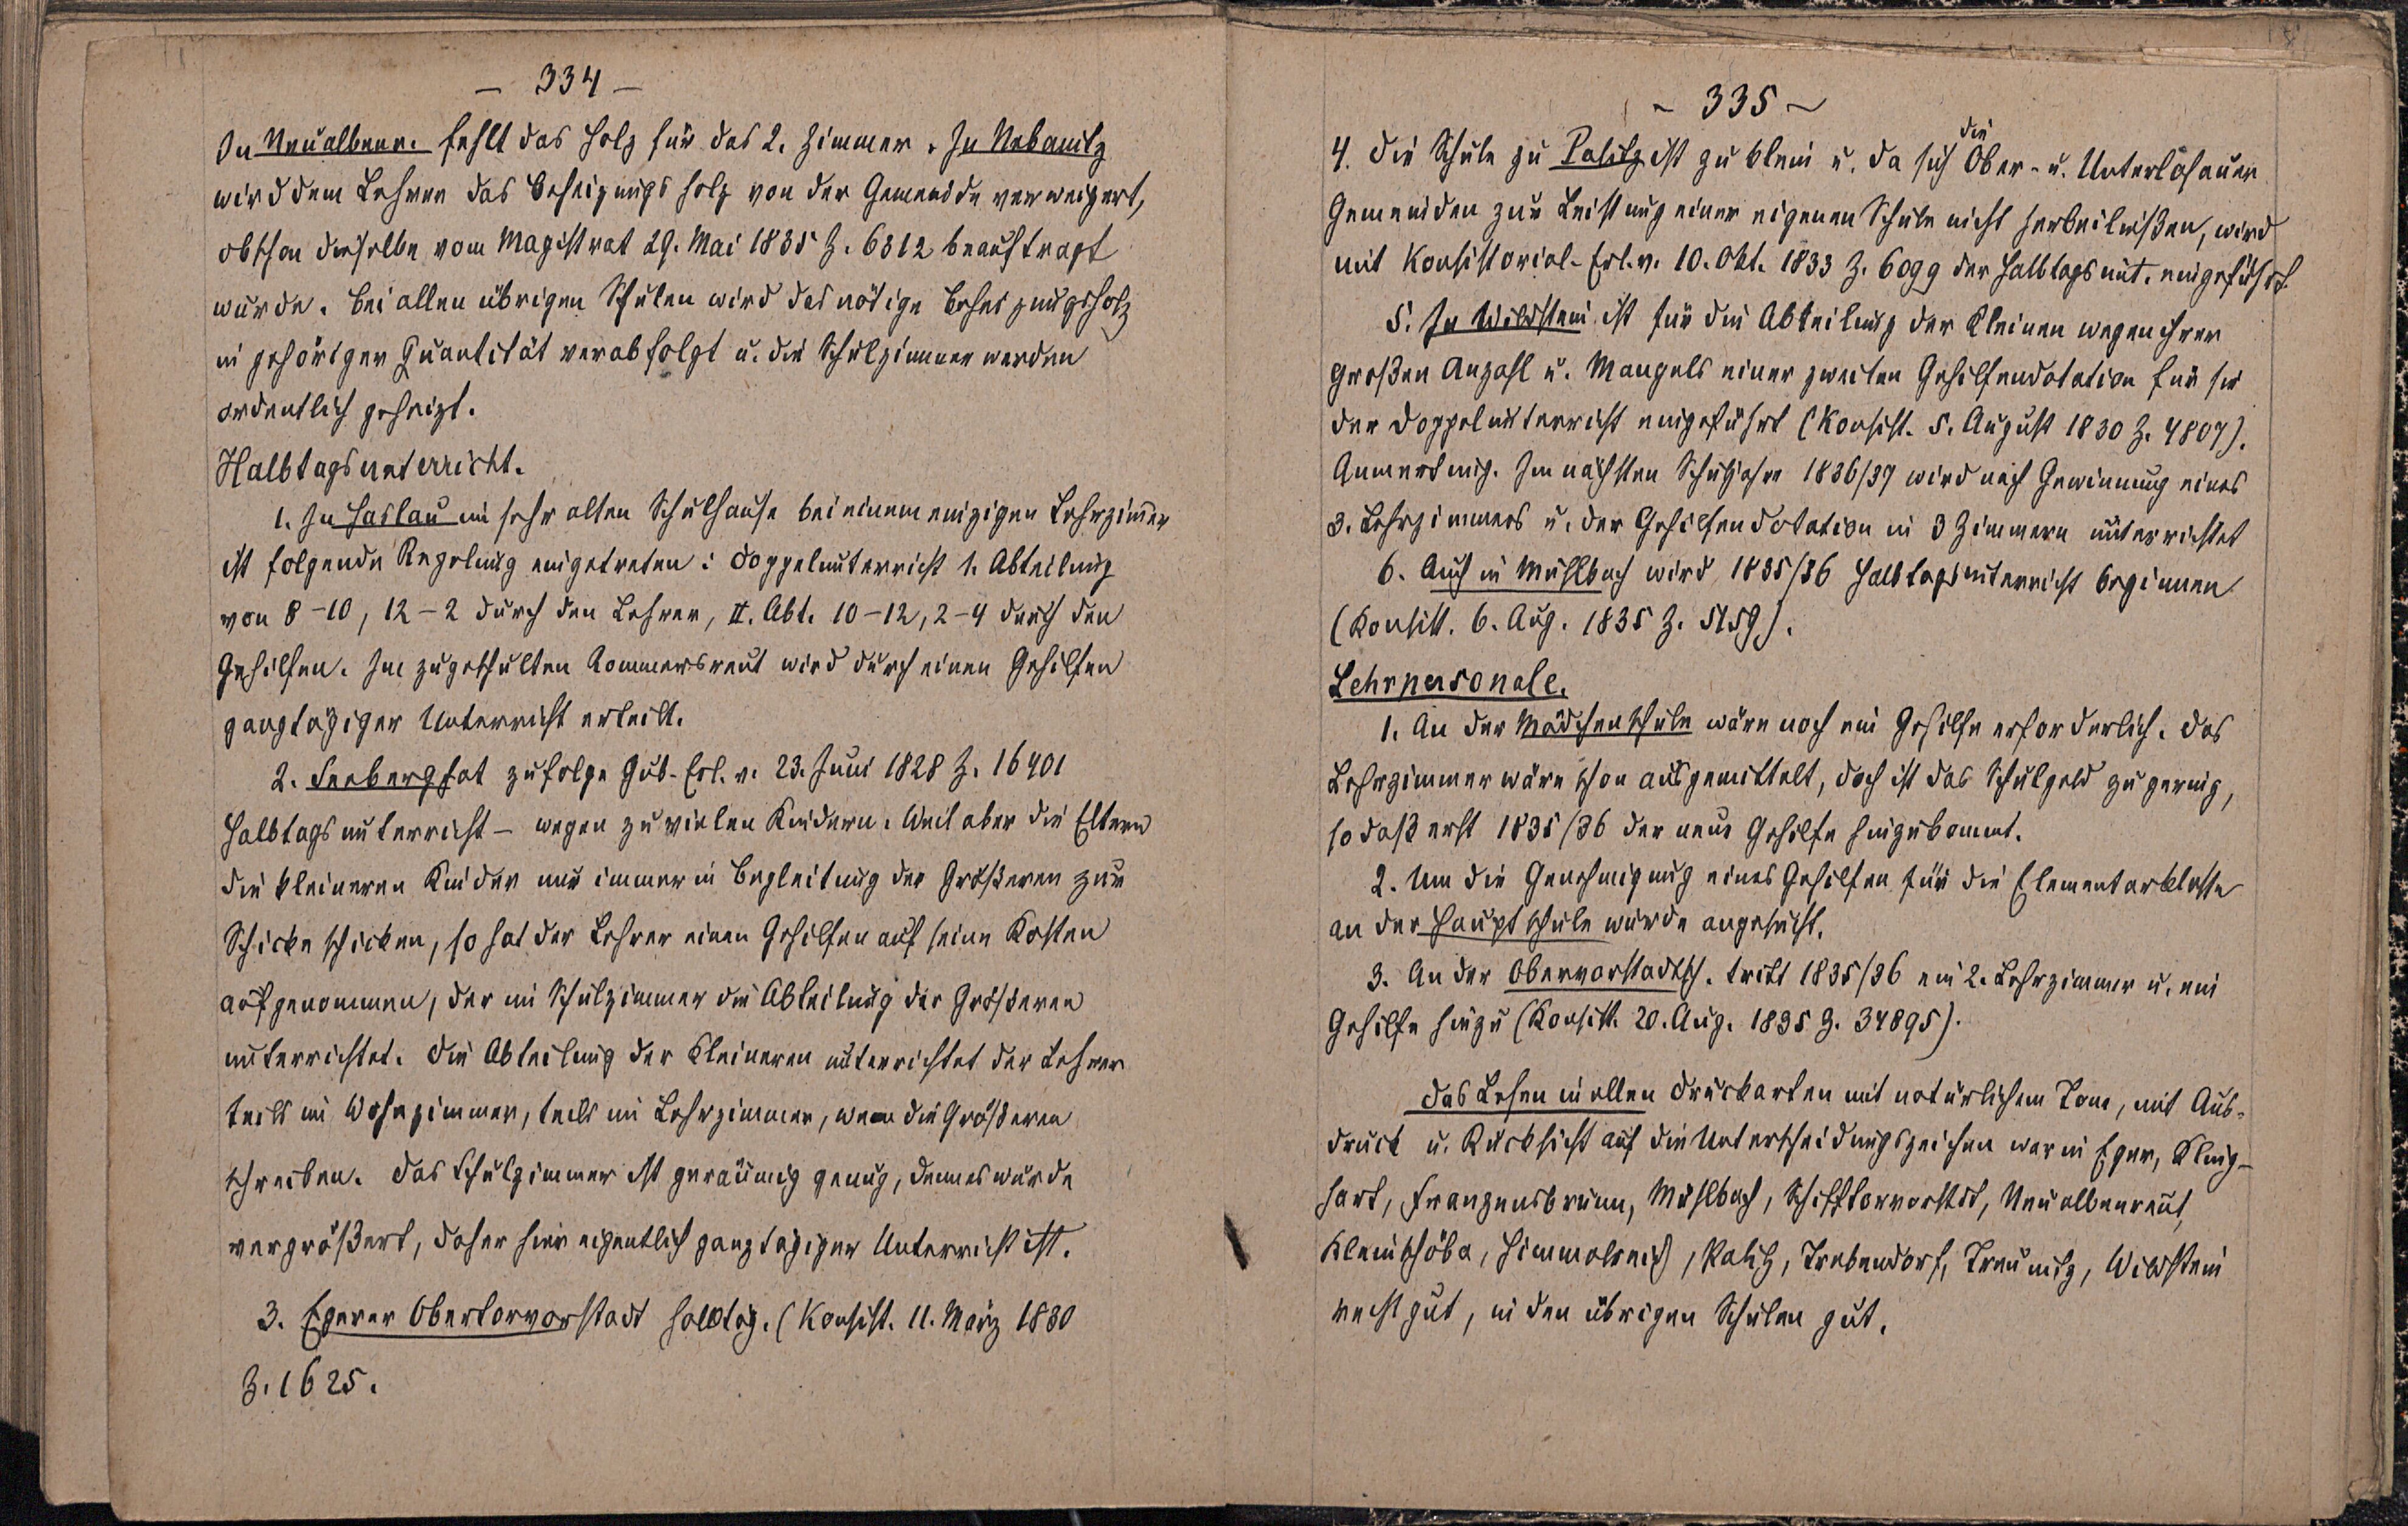 — 334 —
In Neualbenr. fehlt das Holz für das 2. Zimmer. In Nebanitz
wird dem Lehrer das Beheizungsholz von der Gemeinde verweigert,
obschon dieselbe vom Magistrat 29. Mai 1835 Z. 6312 beauftragt
wurde. Bei allen übrigen Schulen wird das nötige Beheizungsholz
in gehöriger Quantität verabfolgt u. die Schulzimmer werden
ordentlich geheizt.
Halbtagsunterricht.
1. In Haslau im sehr alten Schulhause bei einem einzigen Lehrzimmer
ist folgende Regelung eingetreten: Doppelunterricht 1. Abteilung
von 8-10, 12-2 durch den Lehrer, II. Abt. 10-12, 2-4 durch den
Gehilfen. Im zugeschulten Rommersreut wird durch einen Gehilfen
ganztägiger Unterricht erteilt.
2. Seeberg hat zufolge Gub.-Erl. v. 23. Juni 1828 Z. 16401
Halbtagsunterricht - wegen zu vielen Kindern. Weil aber die Eltern
die kleineren Kinder nur immer in Begleitung der Größeren zur
Schicke schicken, so hat der Lehrer einen Gehilfen auf seine Kosten
aufgenommen, der im Schulzimmer die Abteilung der Größeren
unterrichtet. Die Abteilung der Kleineren unterrichtet der Lehrer
teils im Wohnzimmer, teils im Lehrzimmer, wenn die Größeren
schreiben. Das Schulzimmer ist geräumig genug, denn es wurde
vergrößert, daher hier eigentlich ganztägiger Unterricht ist.
3. Egerer Obertorvorstadt halbtäg. (Konsist. 11. März 1830
Z. 1625.
~ 335 ~
4. Die Schule zu Palitz ist zu klein u. da sich die Ober- u. Unterlosauer
Gemeinden zur Leistung einer eigenen Schule nicht herbeiließen, wird
mit Konsistorial-Erl. v. 10. Okt. 1833 Z. 6099 der Halbtagsunt. eingeführt.
5. In Wildstein ist für die Abteilung der Kleinen wegen ihrer
großen Anzahl u. Mangels einer zweiten Gehilfendotation für sie
der Doppelunterricht eingeführt (Konsist. 5. August 1830 Z. 4807).
Anmerkung. Im nächsten Schuljahre 1836/37 wird nach Gewinnung eines
3. Lehrzimmers u. der Gehilfendotation in 3 Zimmern unterrichtet
6. Auch in Mühlbach wird 1835/36 Halbtagsunterricht beginnen
(Konsist. 6. Aug. 1835 Z. 5159).
Lehrpersonale.
1. An der Mädchenschule wäre noch ein Gehilfe erforderlich. Das
Lehrzimmer wäre schon ausgemittelt, doch ist das Schulgeld zu gering,
so daß erst 1835/36 der neue Gehilfe hinzukommt.
2. Um die Genehmigung eines Gehilfen für die Elementarklasse
an der Hauptschule wurde angesucht.
3. An der Obervorstadtsch. tritt 1835/36 ein 2. Lehrzimmer u. ein
Gehilfe hinzu (Konsist. 20. Aug. 1835 Z. 34895).
Das Lesen in allen Druckarten mit natürlichem Tone, mit Aus-
druck u. Rücksicht auf die Unterscheidungszeichen war in Eger, Kling-
hart, Franzensbrunn, Mühlbach, Schifftorvorstdt, Neualbenreut,
Kleinschöba, Himmelreich, Palitz, Trebendorf, Treunitz, Wildstein
recht gut, in den übrigen Schulen gut.